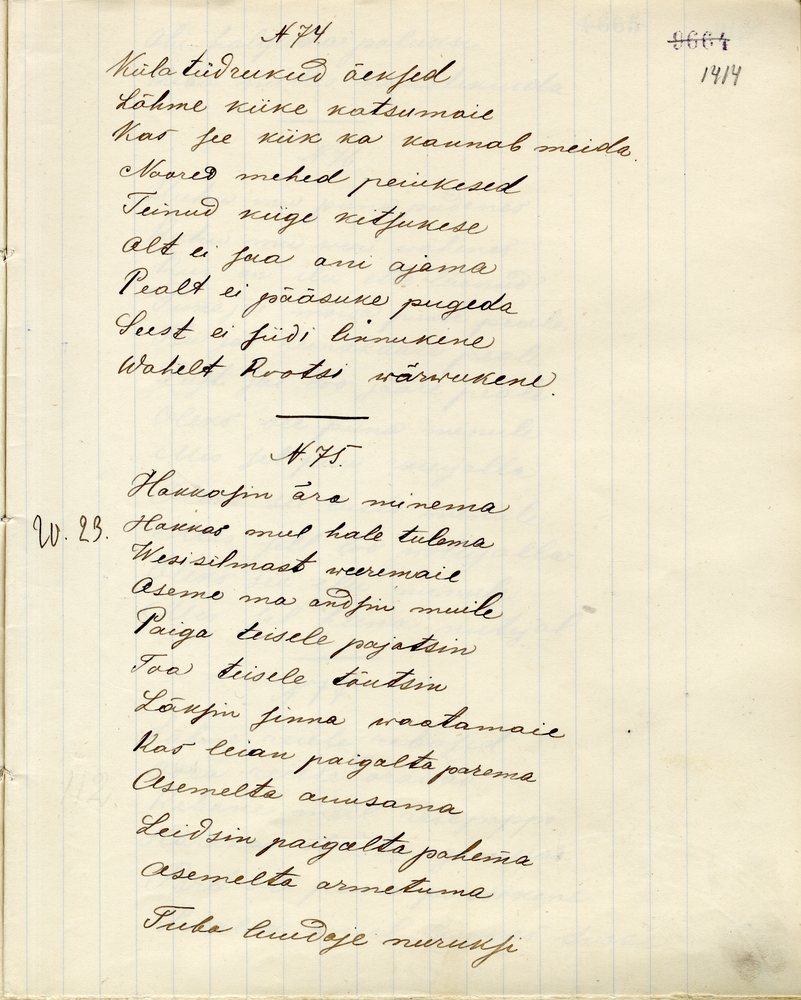 N 74
9664
1414
Küla tüdrukud õeksed
Lähme kiike katsumaie
Kas see kiik ka kannab meida.
Noored mehed peiukesed
Teinud kiige kitsukese
Alt ei saa ani ajama
Pealt ei pääsuke pugeda
Seest ei siidi linnukene
Wahelt Rootsi wärwukene.
N. 75.
Hakkasin ära minema
20. 23. Hakkas mul hale tulema
Wesi silmast weeremaie
Aseme ma andsin muile
Paiga teisele pajatsin
Toa teisele tõutsin
Läksin sinna waatamaie
Kas leian paigalta parema
Asemelta auusama
Leidsin paigalta pahema
Asemelta armetuma
Tuba luudaje nuruksi